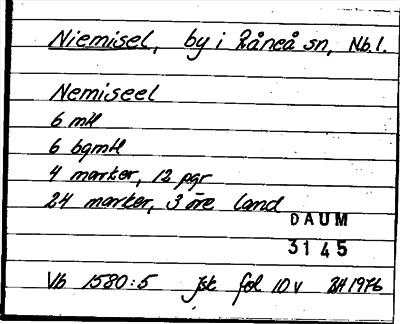 Niemisel, by i Råneå sn, Nb l.
Nemiseel
6 mtl
6 bgmtl
4 marker, 12 pgr
24 marker, 3 öre land
DAUM
3145
Vb 1580:5 Jsk fol 10 v BH 1976